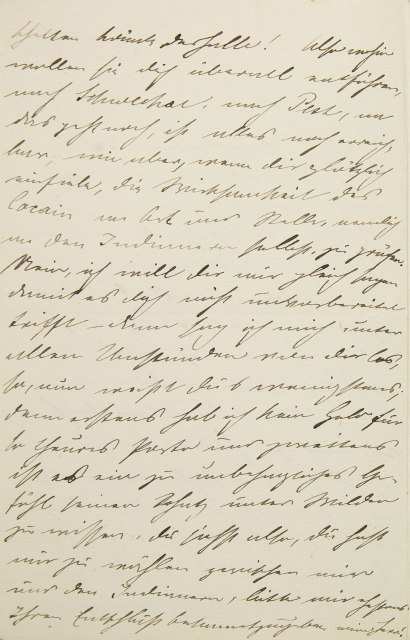 halten könnte derselbe! Also wohin
wollen sie dich überall entführen,
nach Schwechat, nach Pest, nun
das geht noch, ist alles noch erreich
bar, wie aber, wenn dir plötzlich
einfiele, die Wirksamkeit des
Cocain an Ort und Stelle, nämlich
an den Indianern selbst zu prüfen.
Nein, ich will dir nur gleich sagen
damit es dich nicht unvorbereitet
trifft – dann sag ich mich unter
allen Umständen von dir los,
so, nun weißt du's wenigstens;
denn erstens hab ich kein Geld für
so theures Porto und zweitens
ist es ein zu unbehagliches Ge-
fühl seinen Schatz unter Wilden
zu wissen. du siehst also, du hast
nur zu wählen zwischen mir
und den Indianern, bitte mir
Ihren Entschluß bekanntzugeben